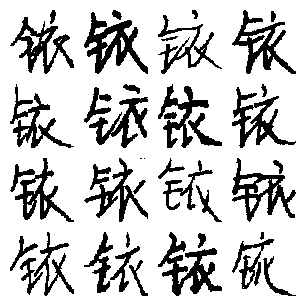 铱铱铱铱
铱铱铱铱
铱铱铱铱
铱铱铱铱